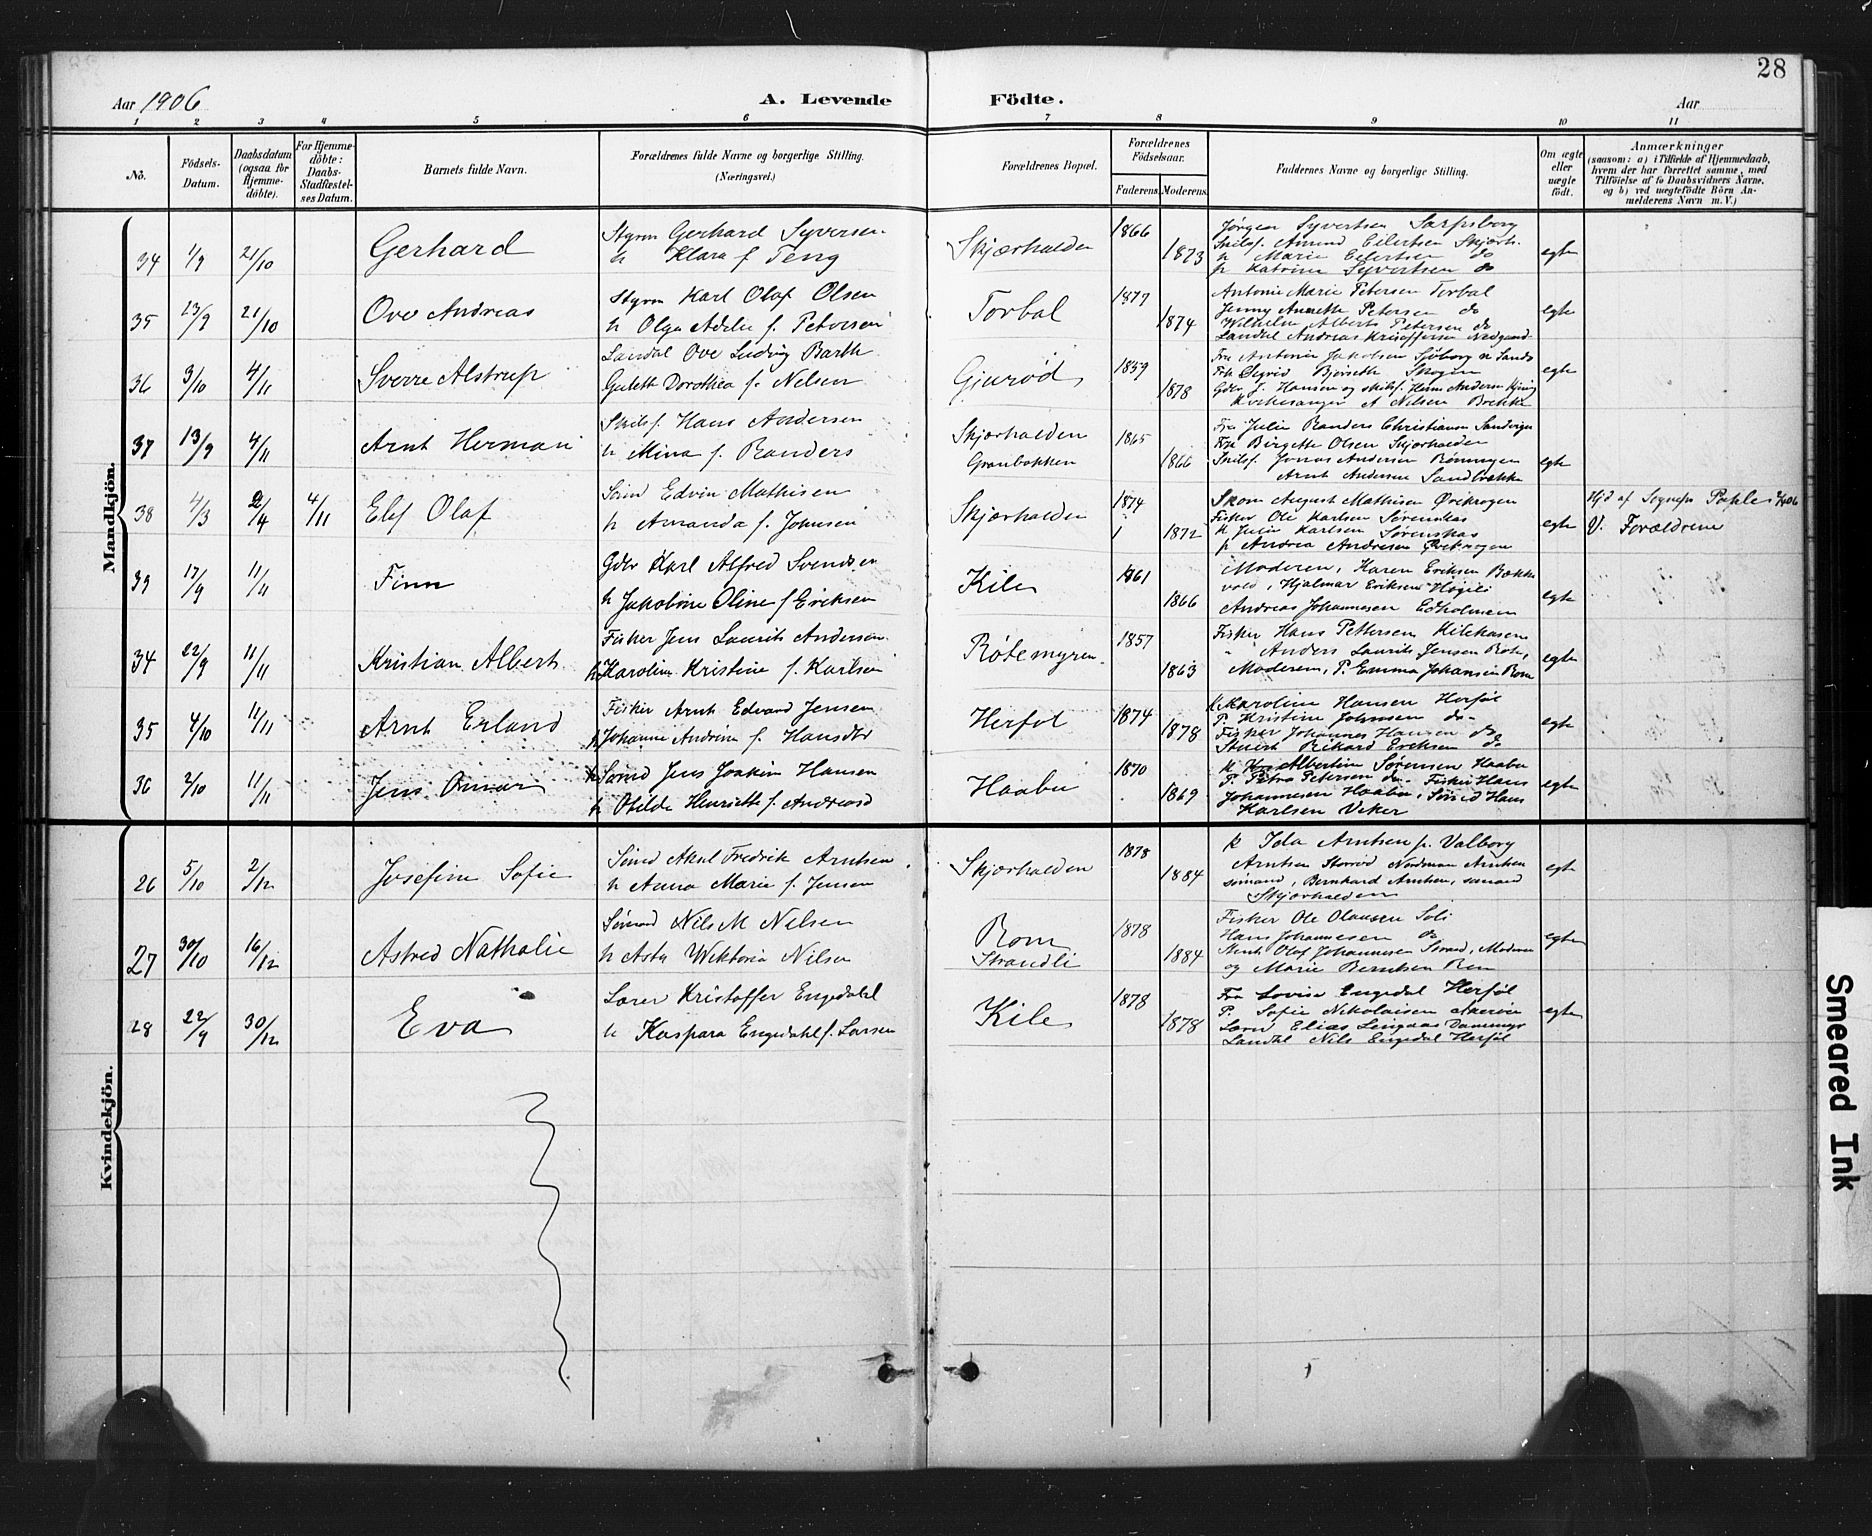 28
Aar 1906
A. Levende Födte.
Aar
1 2 3 4 5 6 7 8 9 10 11
No.
Födsels-
Datum.
Daabsdatum
(ogsaa for
Hjemme-
döbte).
For Hjemme-
döbte:
Daabs-
Stadfæstel-
ses Datum.
Barnets fulde Navn.
Forældrenes fulde Navne og borgerlige Stilling.
(Næringsvei.)
Forældrenes Bopæl.
Forældrenes
Födselsaar.
Faderens. Moderens.
Faddernes Navne og borgerlige Stilling.
Om ægte
eller
uægte
födt.
Anmærkninger
(saasom: a) i Tilfælde af Hjemmedaab,
hvem der har forrettet samme, med
Tilföielse af to Daabsvidners Navne,
og b) ved uægtefödte Börn An-
melderens Navn m. V.)
Mandkjön.
34 1/9 21/10 Gerhard
Styrm Gerhard Syversen
h Klara f Teng
Skjærhalden 1866 1873
Jørgen Syvertsen Sarpsborg
Skilsf. Amund Eilertsen Skjærh.
h Marie Eilertsen do
h Katrine Syvertsen do
egte
35 13/9 21/10 Ove Andreas
Styrm Karl Olaf Olsen
h Olga Adele f. Petersen
Torbal 1877 1874
Antonie Marie Petersen Torbal
Jenny Annette Petersen do
Wilhelm Alberts Petersen do
Landhdl Andreas Kristoffersen Nedgaard
egte
36 3/10 4/11 Sverre Alstrup
Landhdl Ove Ludvig Barth
Dorothea f. Nelsen
Gjurød 1859 1878
Fru Antonie Jakobsen Sjöborg
Frk Sigrid Skogen
Kirkesanger A Nilsen Brekke
egte
37 13/9 4/11 Arnt Herman
Skilsf. Hans Andersen
h Mina f. Randers
Skjærhalden
Granbakken
1865 1866
Fru Julie Randers Christiansen Sandvigen
Fru Birgitte Olsen Skjærhalden
Skilsf. Jonas Andersen Rönningen
Arnt Andersen Sandbrække
egte
38 4/3 2/4 4/11 Elef Olaf
Sömd Edvin Mathisen
h Amanda f. Johnsen
Skjærhalden 1874 1872
Skom August Mathisen Ørekrogen
Fisker Ole Karlsen Sørenskas
K Julie Karlsen Sørenskas
p Andrea Andresen Ørekrogen
egte
Hjd af Sognepr
V. Forældrene
39 17/9 11/11 Finn
Gdbr Karl Alfred Svendsen
h Jakobine Oline f Eriksen
Kile 1861 1866
Moderen, Karen Eriksen Bække
vold, Hjalmar Eriksen Høgeli
Andreas Johannesen Edholmen
egte
34 22/9 11/11 Kristian Albert
Fisker Jens Laurits Andersen
h Karoline Kristine f. Karlsen
Røtemyren 1857 1863
Fisker Hans Pettersen Kilekasene
" Anders Laurits Jensen Røte,
Moderen, P. Emma Johansen Rom
egte
35 4/10 11/11 Arnt Erland
Fisker Arnt Edvard Jensen
h Johanne Andrine f. Hansdtr
Herføl 1874 1878
K Karoline Hansen Herføl
P. Kristine Johnsen do
Fisker Johannes Hansen do
Rikard Eriksen do
egte
36 2/10 11/11 Jens Omar
Sömd Jens Joakim Hansen
h Otilde Henriette f. Andreasd
Haabu 1870 1869
K Albertine Sørensen Haabu
P. Petra Petersen do. Fisker Hans
Johannesen Haabu, Sömd Hans
Karlsen Viker
egte
Kvindekjön.
26 5/10 2/12 Josefine Sofie
Sömd Aksel Fredrik Arntsen
h Anna Marie f. Jensen
Skjærhalden 1878 1884
K Ida Arntsen p. Valborg
Arntsen Storrød Nordman Arntsen
sömand, Bernhard Arntsen, sömand
Skjærhalden
egte
27 30/10 16/12 Astrid Nathalie
Sömand Nils M Nilsen
h Asta Wiktoria Nilsen
Rom
Strandli
1878 1884
Fisker Ole Olausen Soli
Hans Johannesen do
Olaf Johannesen Strand, Moderen
og Marie Berntsen Rom
egte
28 22/9 30/12 Eva
Lærer Kristoffer Engedahl
h Kaspara Engedahl f. Larsen
Kile 1878 1878
Fru Lovise Engedal Herføl
P. Sofie Nikolaisen Akerøen
Lærer Elias Lingaas
Landhdl Nils Engedal Herføl
egte
Smeared Ink